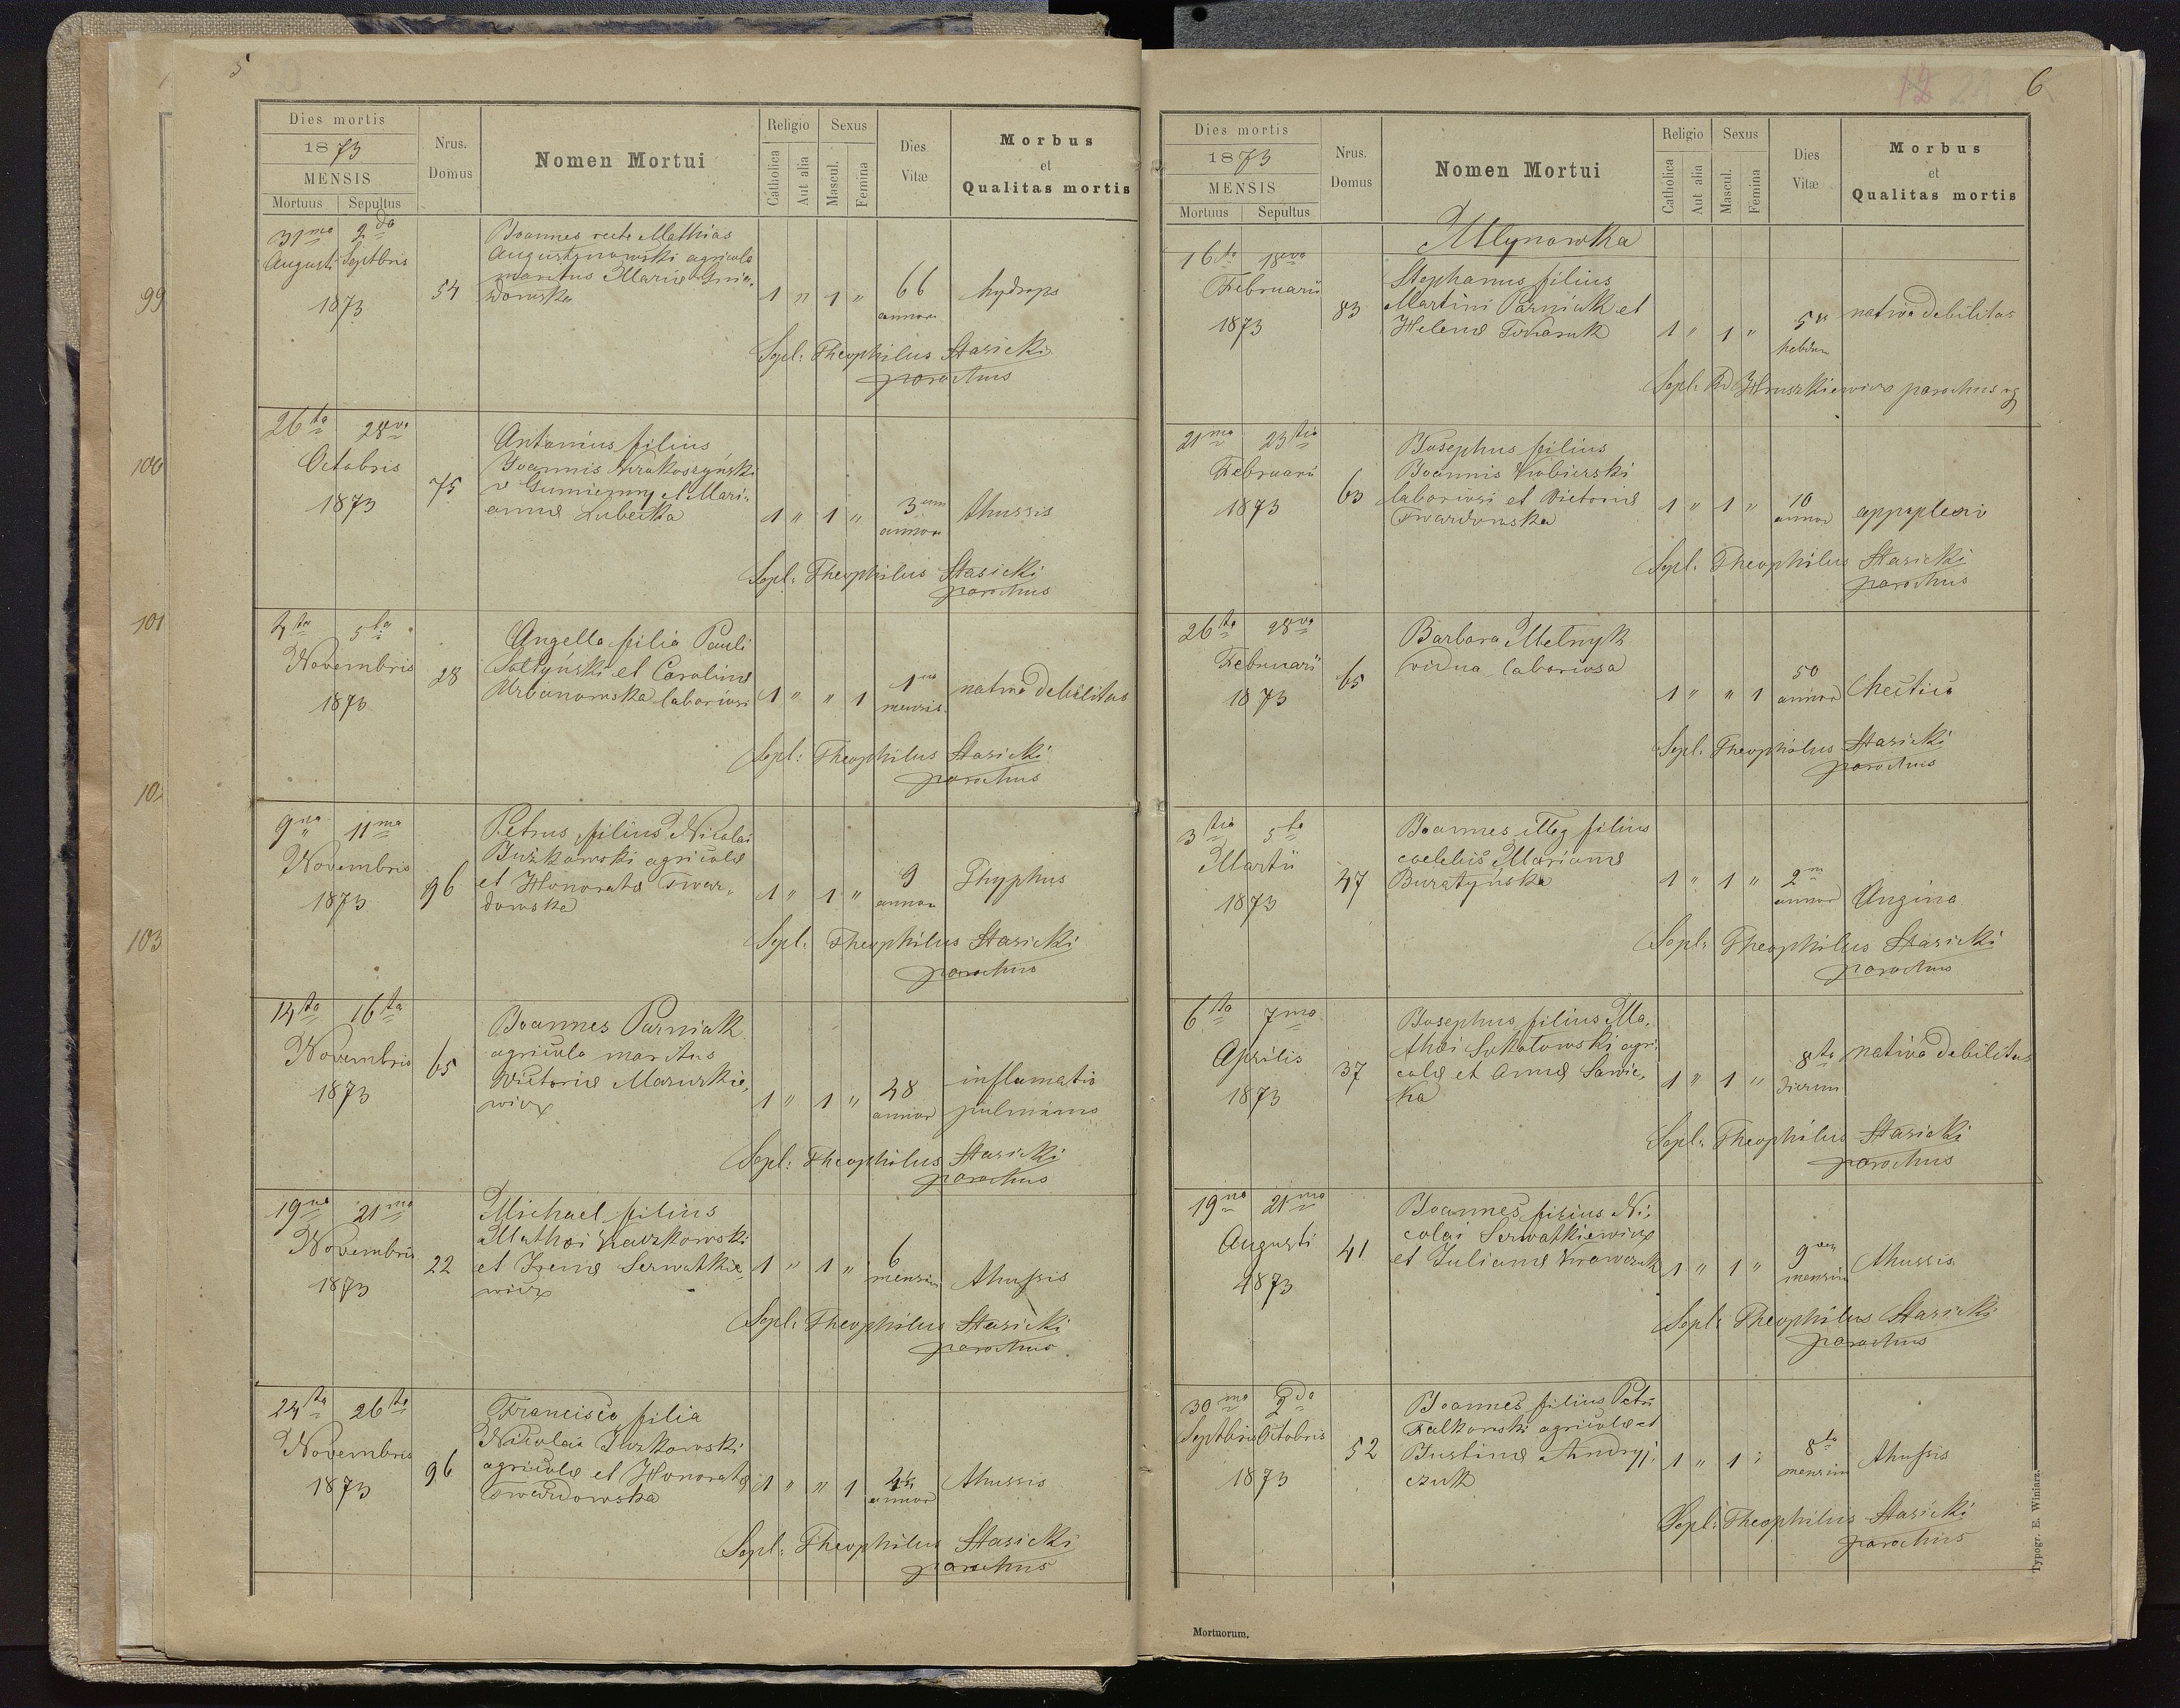 5
Dies mortis
1873
MENSIS
Mortuus Sepultus
Nrus. Domus
Nomen Mortui
Religio
Catholica
Aut alia
Sexus
Mascul.
Femina
Dies Vitæ
Morbus
et
Qualitas mortis
99
100
101
102
103
31ma 2da
Augusti Septbris
1873
54
Joannes recte Mathias
Augustynowski agricola
maritus Mariæ Gnia-
dowska
1 " 1 "
66
annor
hydrops
Sepl: Theophilus Stasicki
parochus
26ta 28va
Octobris
1873
75
Antonius filius
Joannis Krokoszyński
v Gumienny et Mari-
annæ Lubecka
1 " 1 "
3um
annor
thussis
Sepl: Theophilus Stasicki
parochus
4ta 5ta
Novembris
1873
28
Angella filia Pauli
Sołtyński et Carolinæ
Urbanowska laboriosi
1 " " 1
1us
mensis
nativa debilitas
Sepl: Theophilus Stasicki
parochus
9na 11ma
Novembris
1873
96
Petrus filius Nicolai
Juzkowski agricolæ
et Honoratæ Twar-
dowska
1 " 1 "
9
annor
Thyphus
Sepl: Theophilus Stasicki
parochus
14ta 16ta
Novembris
1873
65
Joannes Parniak
agricola maritus
Victoriæ Mazurkie-
wicz
1 " 1 "
48
annor
inflamatio
pulminis
Sepl: Theophilus Stasicki
parochus
19na 21ma
Novembris
1873
22
Michael filius
Mathæi Kaczkowski
et Irenæ Serwatkie-
wicz
1 " 1 "
6
mensium
thussis
Sepl: Theophilus Stasicki
parochus
24ta 26ta
Novembris
1873
96
Francisca filia
Nicolai Juzkowski
agricolæ et Honoratæ
Twardowska
1 " " 1
annor
thussis
Sepl: Theophilus Stasicki
parochus
6
Dies mortis
1873
MENSIS
Mortuus Sepultus
Nrus. Domus
Nomen Mortui
Religio
Catholica
Aut alia
Sexus
Mascul.
Femina
Dies Vitæ
Morbus
et
Qualitas mortis
Młynowka
16ta 18va
Februarii
1873
83
Stephanus filius
Martini Parniak et
Helenæ Tokaruk
1 " 1 "
5
hebdom
nativa debilitas
Sepl: Hruszkiewicz parochus
21ma 23tia
Februarii
1873
63
Josephus filius
Joannis Kobierski
laboriosi et Victoriæ
Twardowska
1 " 1 "
10
annor
appoplexio
Sepl: Theophilus Stasicki
parochus
26ta 28va
Februarii
1873
65
Barbara Melnyk
vidua laboriosa
1 " " 1
50
annor
hectica
Sepl: Theophilus Stasicki
parochus
3tia 5ta
Martii
1873
47
Joannes illeg filius
coelebis Mariannæ
Buratyńska
1 " 1 "
2
annor
Angina
Sepl: Theophilus Stasicki
parochus
6ta 7ma
Aprilis
1873
37
Josephus filius Ma-
thæi Sokołowski agri-
colæ et Annæ Sawic-
ka
1 " 1 "
8to
dierum
nativa debilitas
Sepl: Theophilus Stasicki
parochus
19na 21ma
Augusti
1873
41
Joannes filius Ni-
colai Serwatkiewicz
et Julianæ Krawczuk
1 " 1 "
9
mensium
thussis
Sepl: Theophilus Stasicki
parochus
30ma 2da
Septbris Octobris
1873
52
Joannes filius Petri
Falkowski agricolæ et
Justinæ Andryj-
czuk
1 " 1 "
8to
mensium
thussis
Sepl: Theophilus Stasicki
parochus
Typogr. E. Winiarz.
Mortuorum.